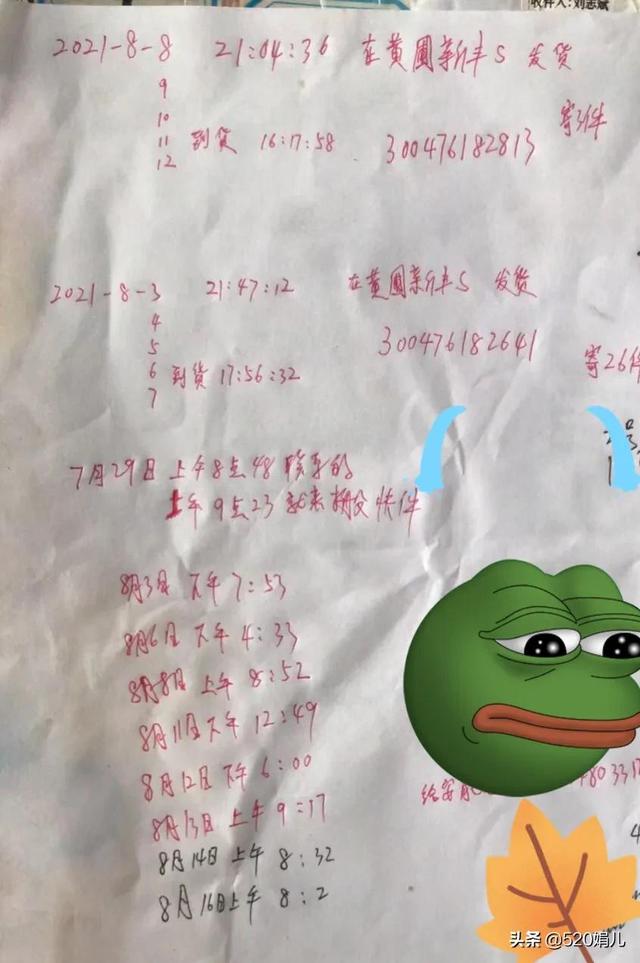 收件人:刘志斌
2021-8-8 21:04:36 在黄圃新丰S 发货
9
10
寄3件
11 到货 16:17:58 300476182813
12
2021-8-3 21:47:12 在黄圃新丰S 发货
4
5 300476182641
6 到货 17:56:32 寄26件
7
7月29日 上午8点48
上午9点23 快件
8月3日 下午7:53
8月6日 下午4:33
8月8日 上午 8:52
8月11日下午 12:49
8月12日 下午 6:00
8月13日 上午 9:17
8月14日 上午 8:32
8月16日上午 8:2
头条 @520娟儿